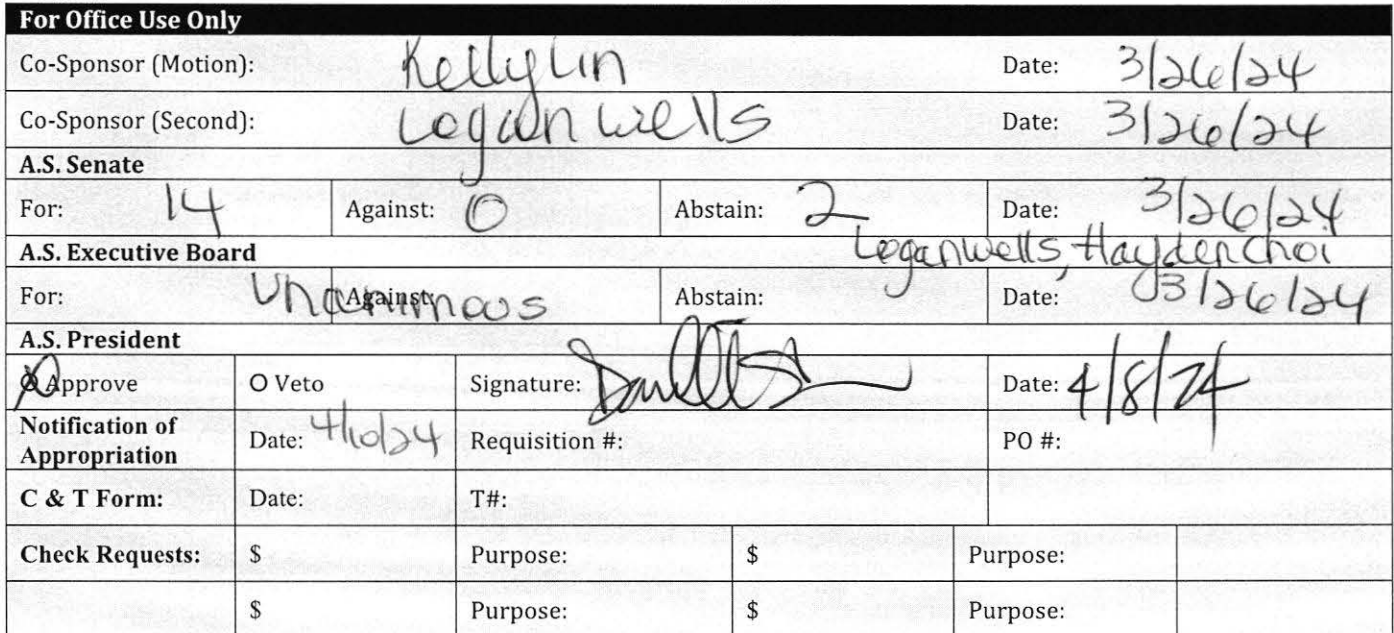 For Office Use Only
Co-Sponsor (Motion): Kelly Lin Date: 3/26/24
Co-Sponsor (Second): Logan Wells Date: 3/26/24
A.S. Senate
For: 14 Against: 0 Abstain: 2 Date: 3/26/24
A.S. Executive Board Logan Wells, Hayden Choi
For: Unanimous Against: Abstain: Date: 3/26/24
A.S. President
O Approve O Veto Signature: Date: 4/8/24
Notification of Date: 4/10/24 Requisition #: PO #:
Appropriation
C & T Form: Date: T#:
Check Requests: $ Purpose: $ Purpose:
$ Purpose: $ Purpose: